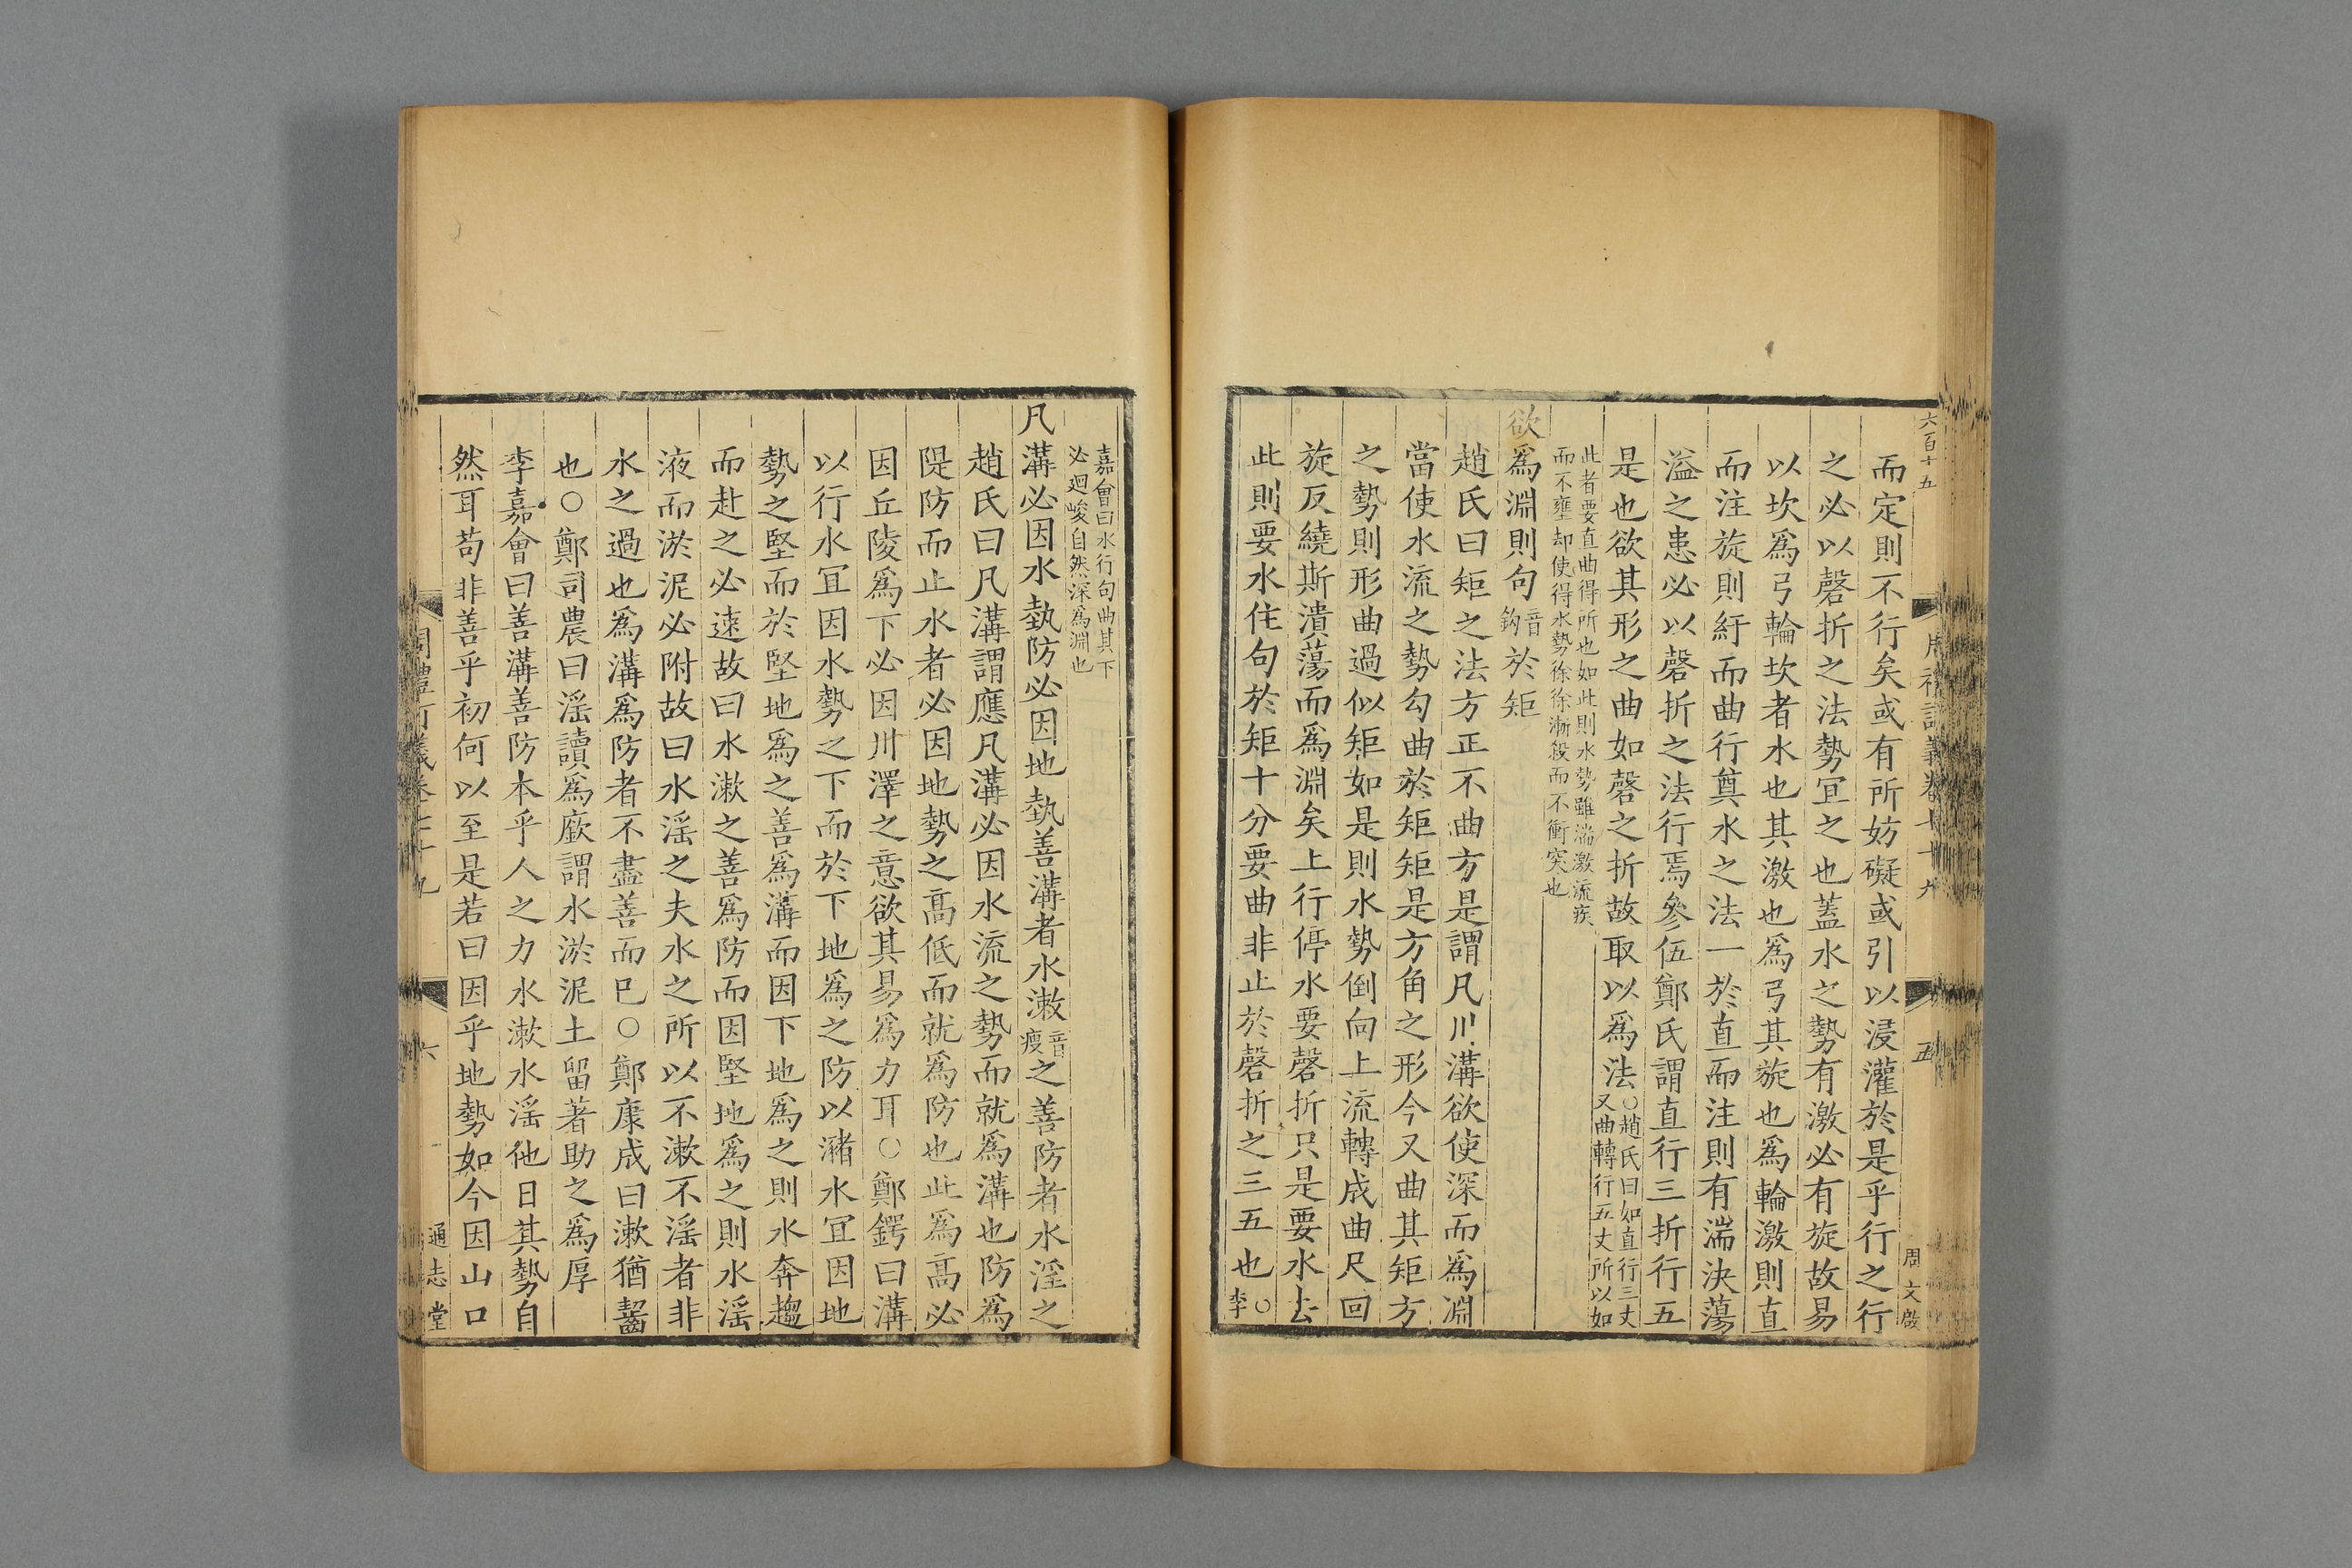 六百十五
周禮訂義卷七十九
五
周文啟
而定則不行矣或有所妨礙或引以浸灌於是乎行之行
之必以磬折之法勢宜之也蓋水之勢有激必有旋故易
以坎爲弓輪坎者水也其激也爲弓其旋也爲輪激則直
而注旋則紆而曲行奠水之法一於直而注則有湍決蕩
溢之患必以磬折之法行焉參伍鄭氏謂直行三折行五
是也欲其形之曲如磬之折故取以爲法
○趙氏曰如直行三丈
又曲轉行五丈所以如
此者要直曲得所也如此則水勢雖湍激流疾
而不壅却使得水勢徐徐漸殺而不衝突也
欲爲淵則句音鈎於矩
趙氏曰矩之法方正不曲方是謂凡川溝欲使深而爲淵
當使水流之勢勾曲於矩矩是方角之形今又曲其矩方
之勢則形曲過似矩如是則水勢倒向上流轉成曲尺回
旋反繞斯潰蕩而爲淵矣上行停水要磬折只是要水去
此則要水住句於矩十分要曲非止於磬折之三五也○李
嘉會曰水行句曲其下
必迴峻自然深爲淵也
凡溝必因水埶防必因地埶善溝者水漱音瘦之善防者水淫之
趙氏曰凡溝謂應凡溝必因水流之勢而就爲溝也防爲
隄防而止水者必因地勢之高低而就爲防也此爲高必
因丘陵爲下必因川澤之意欲其易爲力耳○鄭鍔曰溝
以行水宜因水勢之下而於下地爲之防以瀦水宜因地
勢之堅而於堅地爲之善爲溝而因下地爲之則水奔趨
而赴之必速故曰水漱之善爲防而因堅地爲之則水淫
液而淤泥必附故曰水淫之夫水之所以不漱不淫者非
水之過也爲溝爲防者不盡善而已○鄭康成曰漱猶齧
也○鄭司農曰淫讀爲廞謂水淤泥土留著助之爲厚
李嘉會曰善溝善防本乎人之力水漱水淫他日其勢自
然耳苟非善乎初何以至是若曰因乎地勢如今因山口
周禮訂義卷七十九
六
通志堂